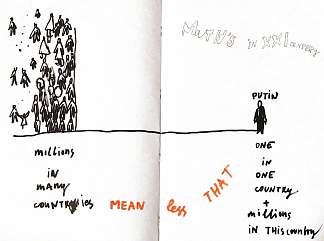 MYTH'S IN XXI CENTURY
PUTIN
millions
in
many
countries
MEAN less THAT
ONE
in
ONE
COUNTRY
+
millions
IN THIS country